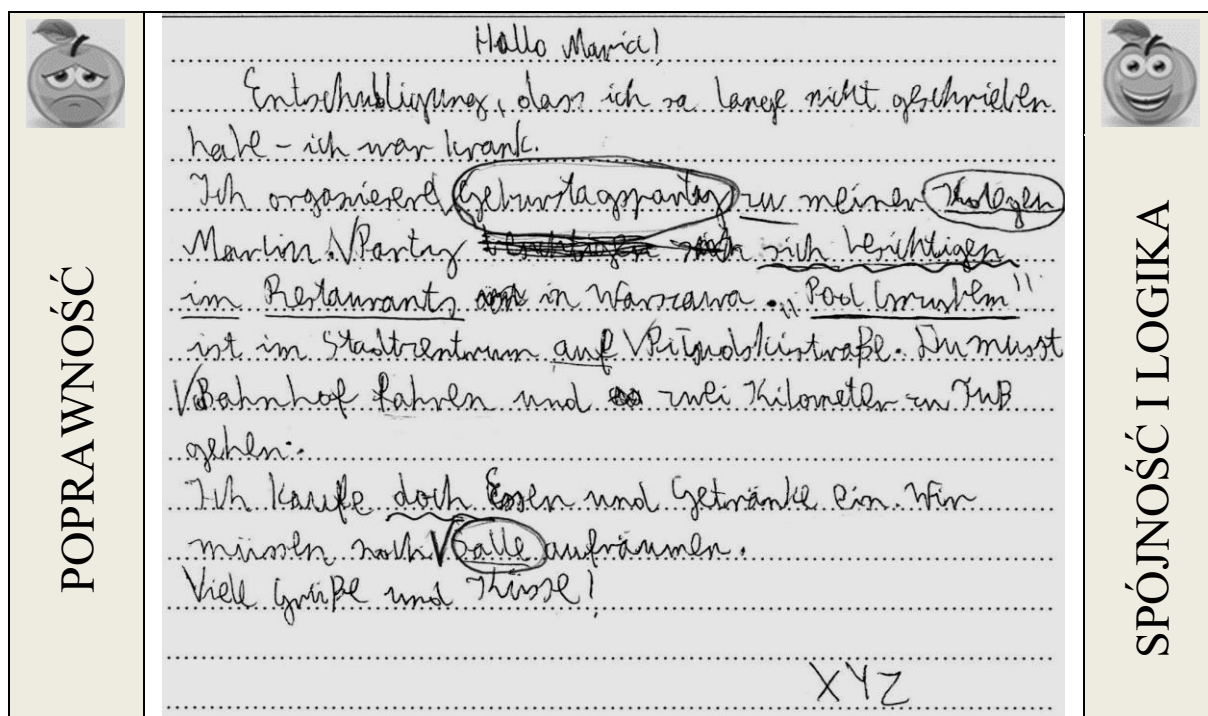 POPRAWNOŚĆ
Hallo Maria!
Entschubligung, dass ich so lange nicht geschrieben
habe - ich war krank.
Ich organisiere Geburstagsparty zu meinen Kolegen
Marcin. Party sich besichtigen
im Restaurants in Warszawa. "Pod
ist im Stadtzentrum auf Piłsudskistraße. Du musst
Bahnhof fahren und zwei Kilometer zu Fuß
gehen.
Ich kaufe doch Essen und Getränke ein. Wir
müssen noch Salle aufräumen.
Viele Grüße und Küsse!
XYZ
SPÓJNOŚĆ I LOGIKA